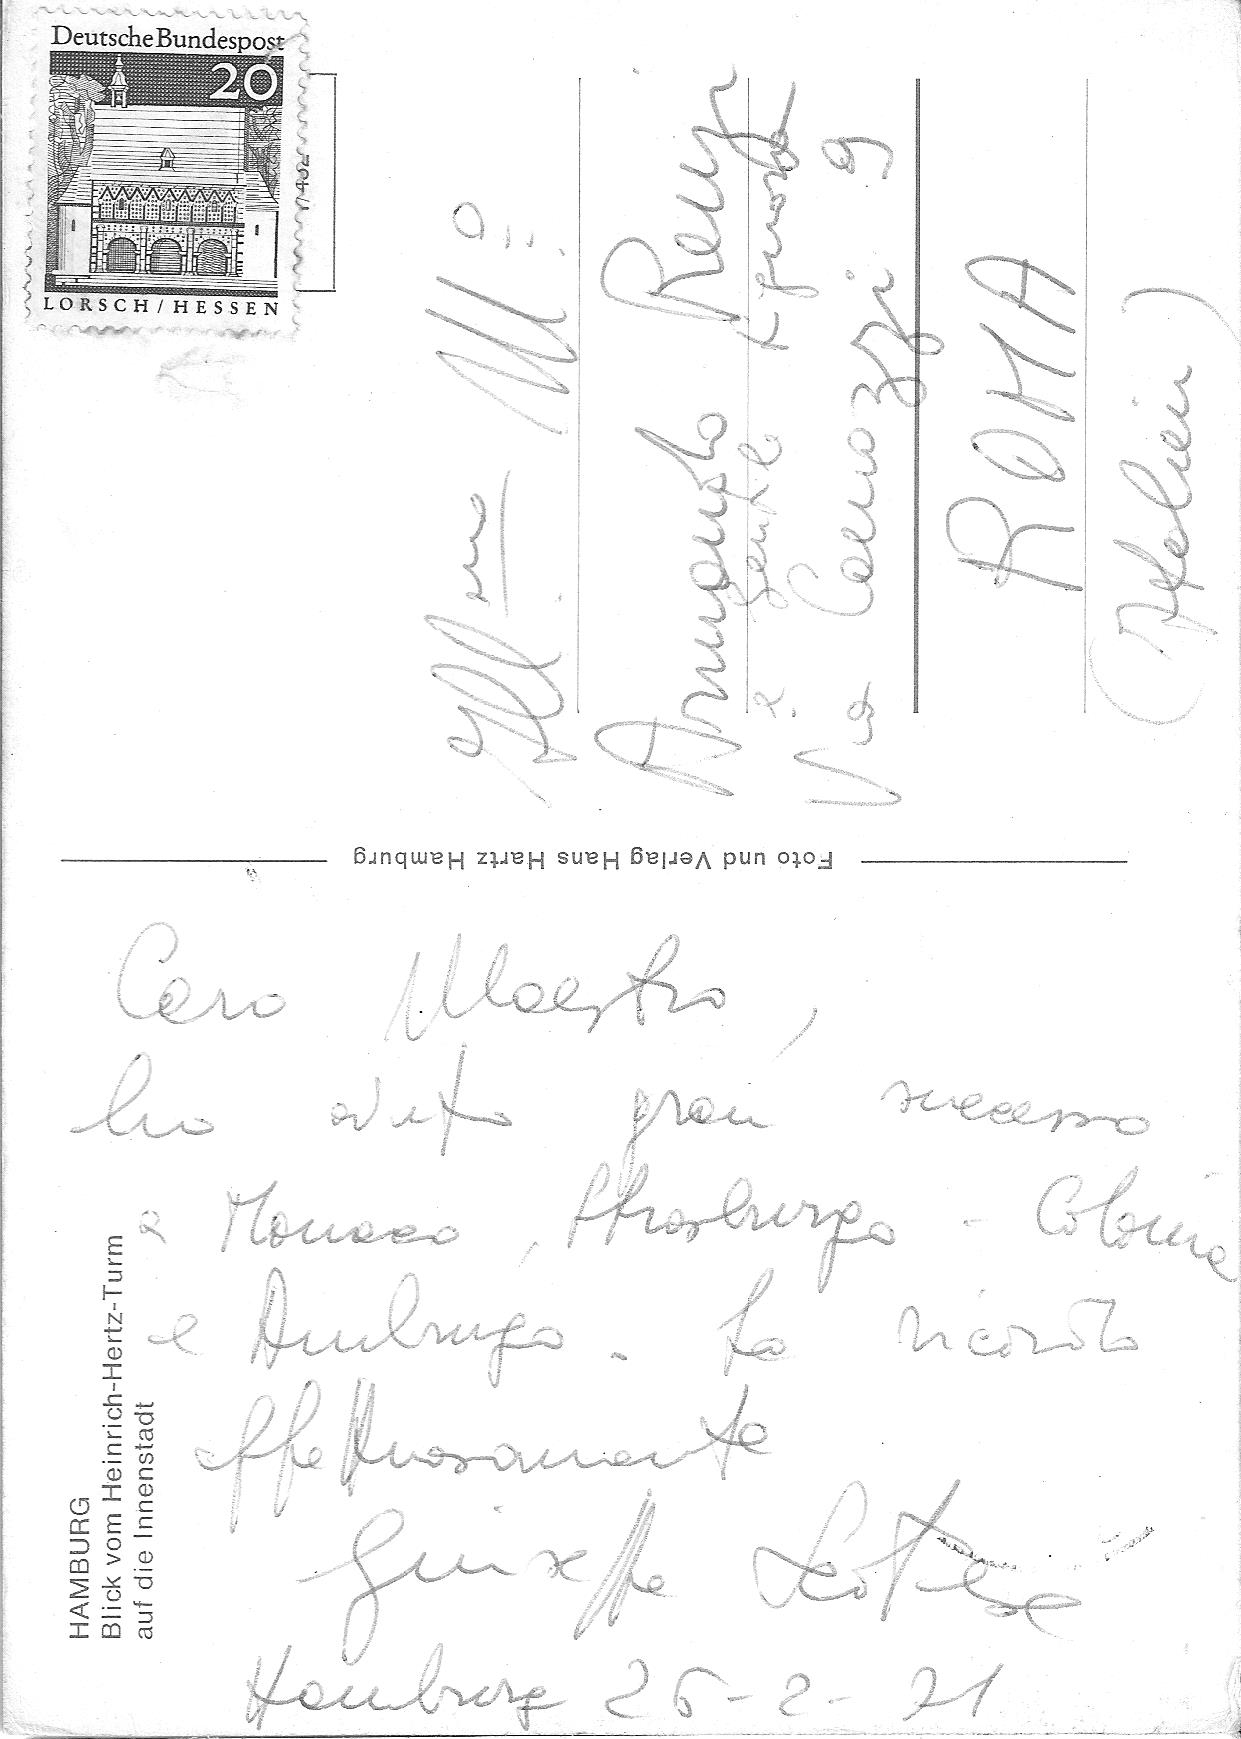 Deutsche Bundespost
20
LORSCH/HESSEN
Ill.mo M.o
Armando Renzi
e gentile signora
Via Camozzi 9
ROMA
(Italien)
Foto und Verlag Hans Hartz Hamburg
Caro Maestro,
ho avuto gran successo
a Monaco, Strasburgo - Colonia
e Amburgo. La ricordo
affettuosamente
Giuseppe
Hamburg 26-2-71
HAMBURG
Blick vom Heinrich-Hertz-Turm
auf die Innenstadt